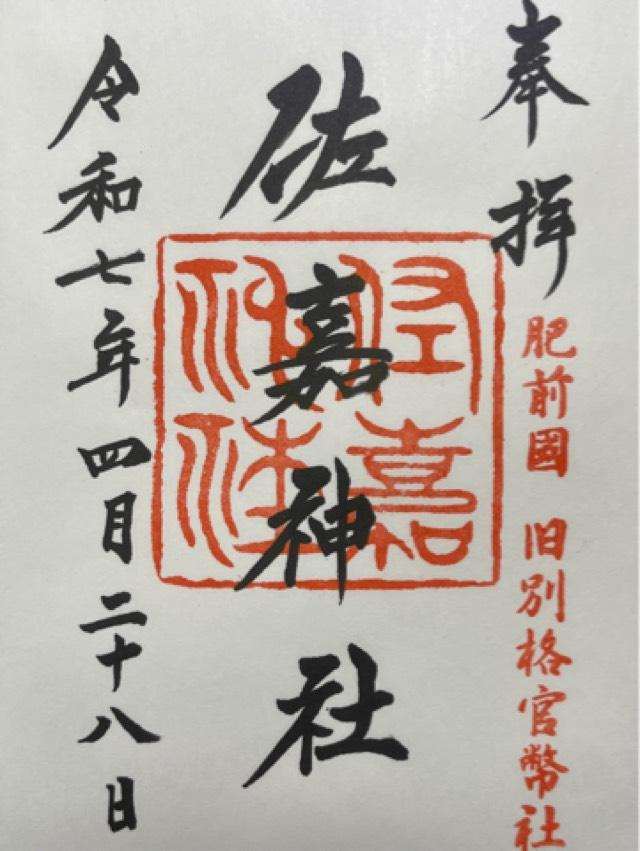 奉拝
肥前國 旧別格官幣社
佐嘉神社
佐嘉
神社
令和七年四月二十八日